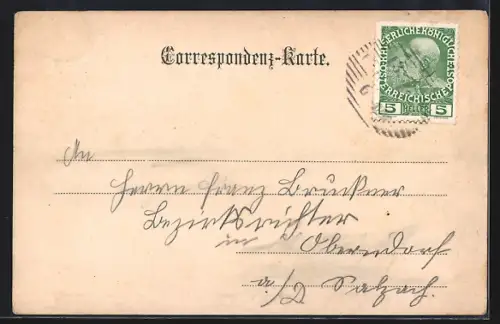 Correspondenz-Karte.
KAISERLICHEKÖNIGLICHE
ÖSTERREICHISCHE POST
5 HELLER 5
An
Herrn Franz Bruckner
Bezirksrichter
in Oberndorf
a/d Salzach.